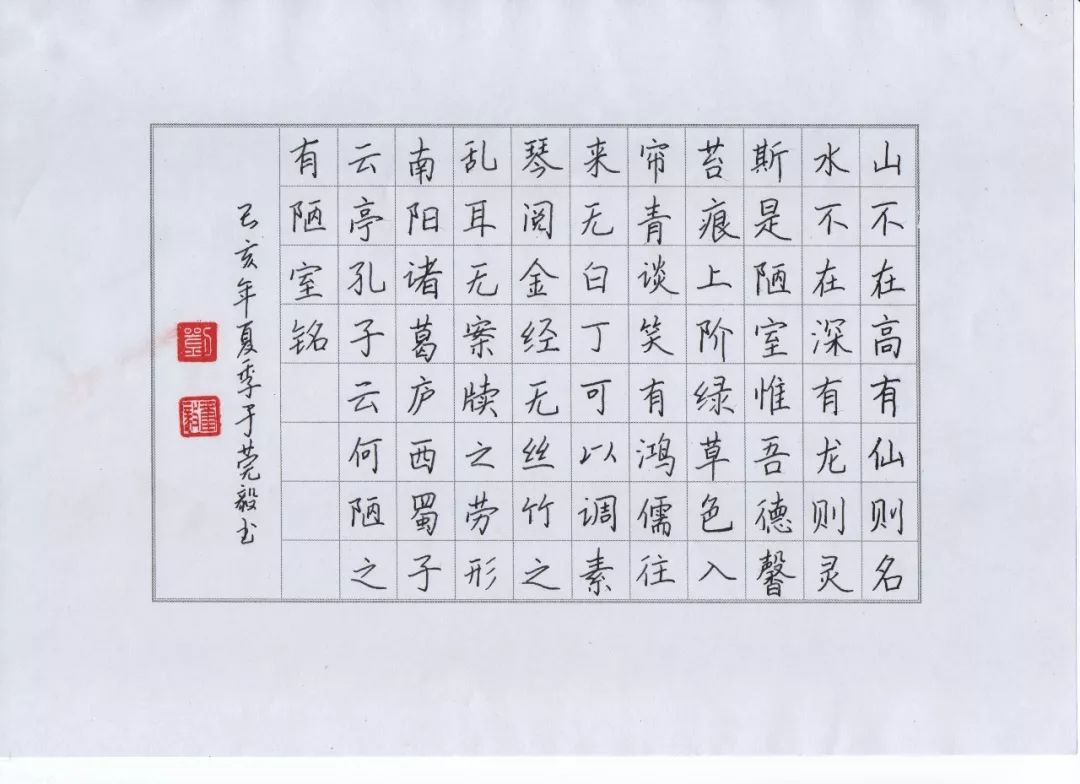 山不在高有仙则名
水不在深有龙则灵
斯是陋室惟吾德馨
苔痕上阶绿草色入
帘青谈笑有鸿儒往
来无白丁可以调素
琴阅金经无丝竹之
乱耳无案牍之劳形
南阳诸葛庐西蜀子
云亭孔子云何陋之
有陋室铭
己亥年夏季于莞毅书
劉